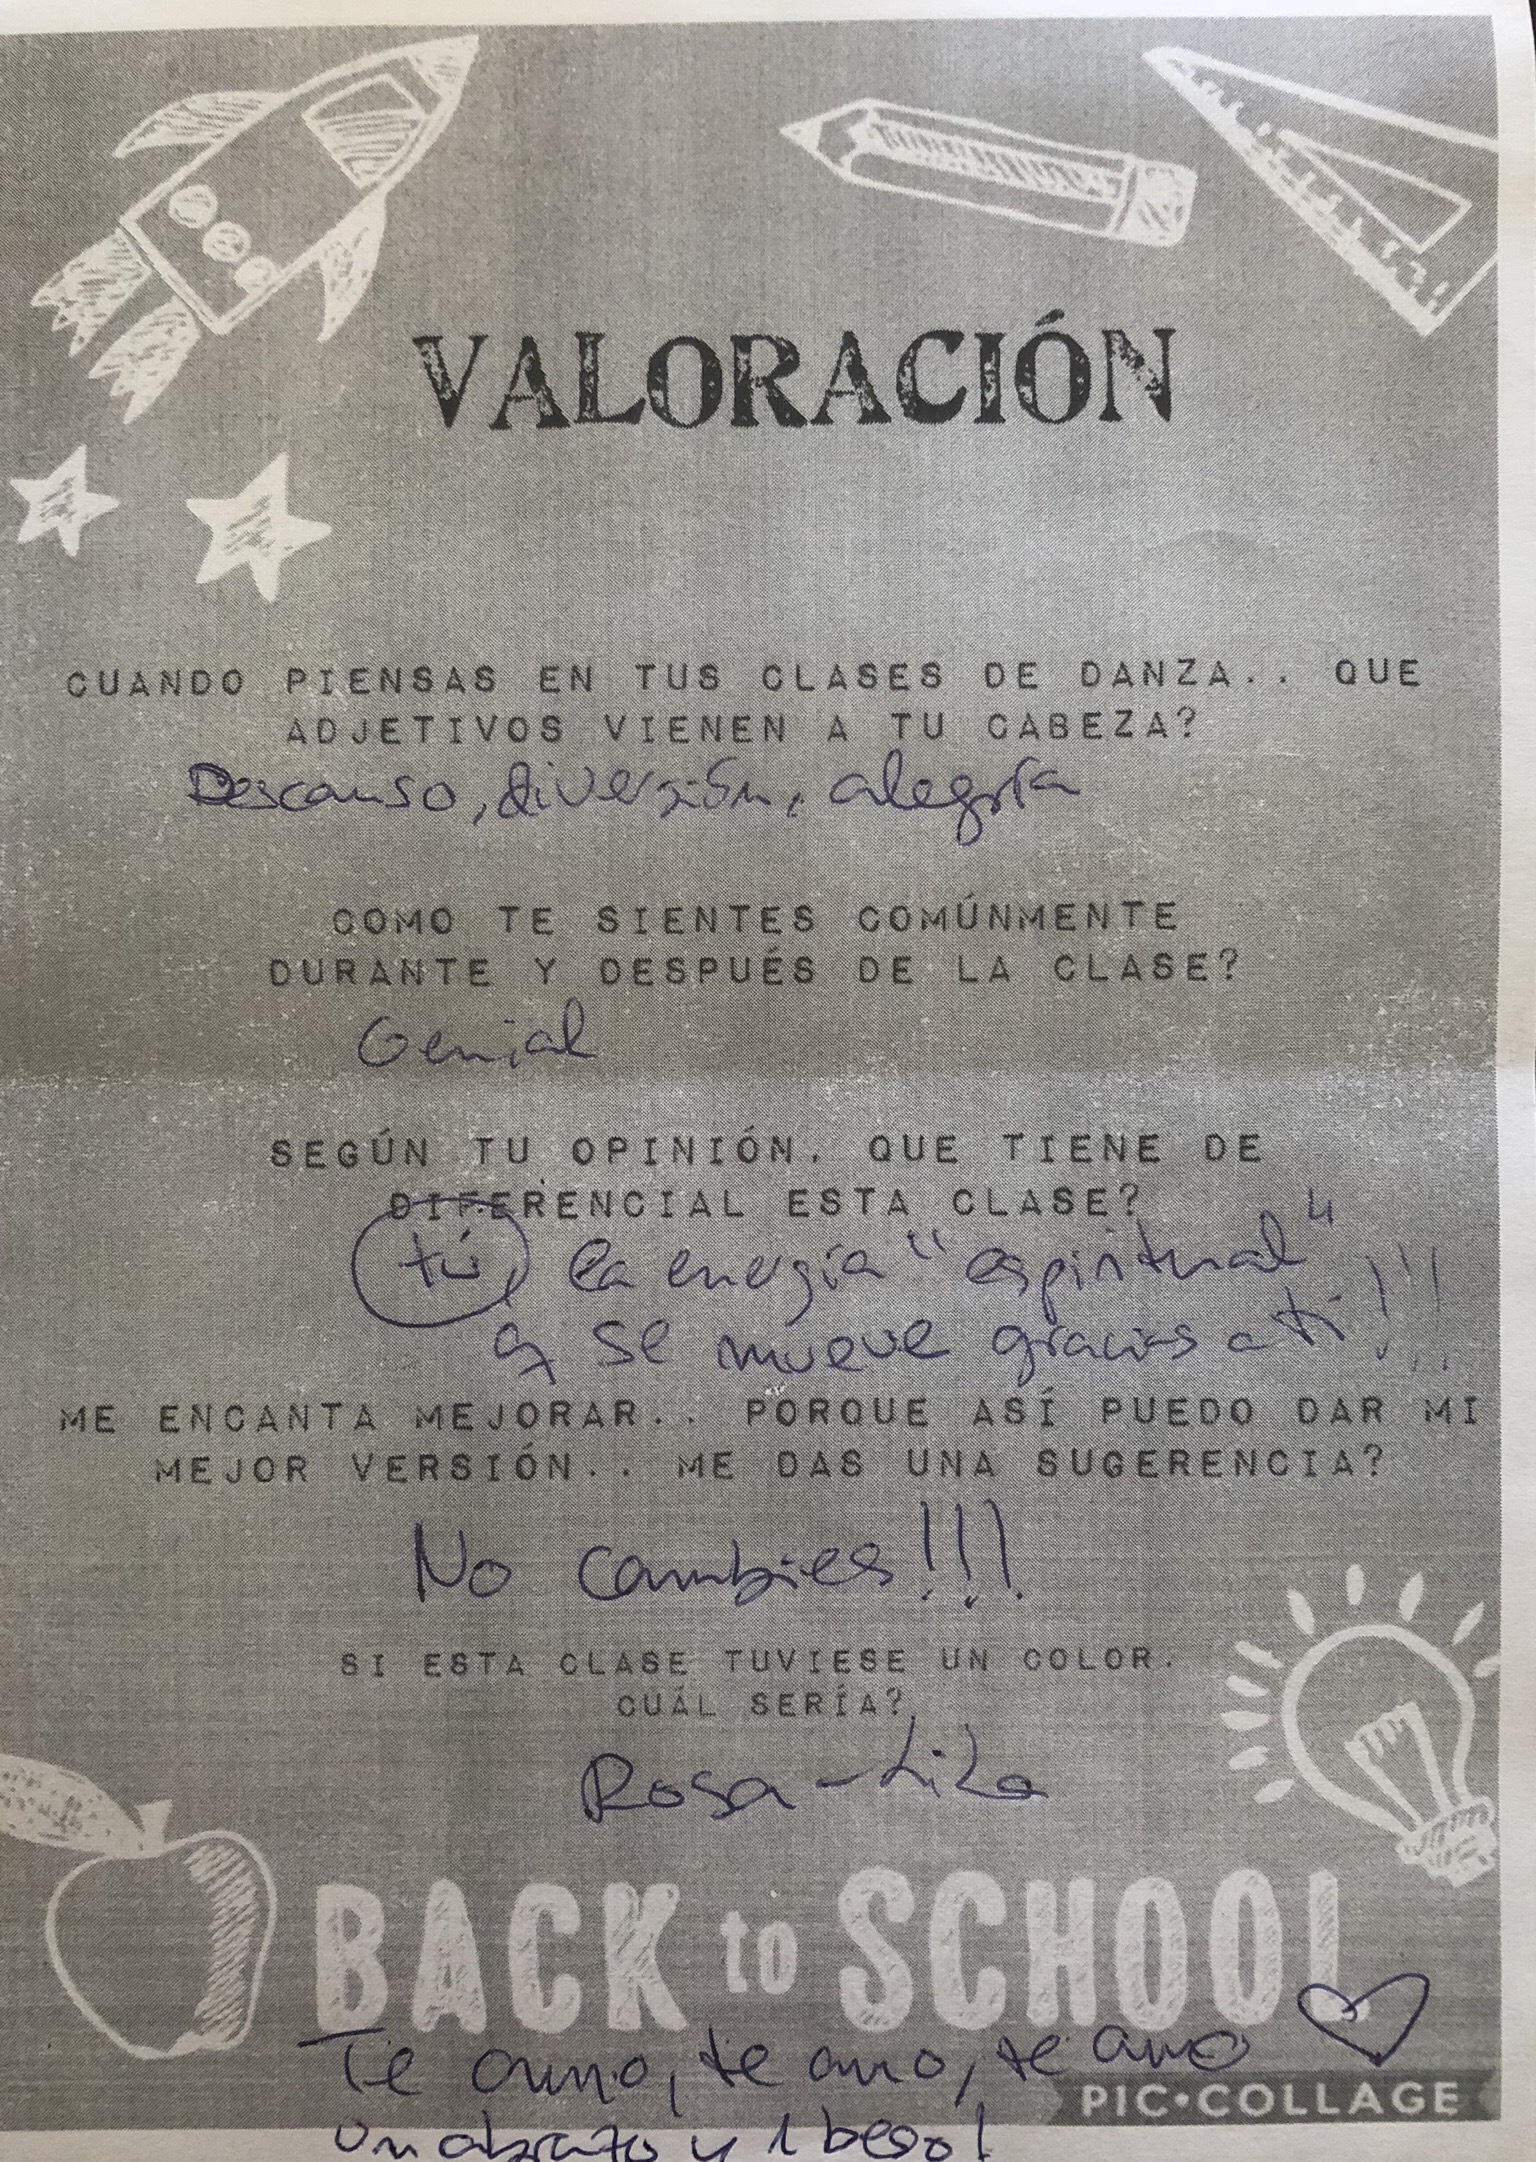 VALORACIÓN
CUANDO PIENSAS EN TUS CLASES DE DANZA.. QUE
ADJETIVOS VIENEN A TU CABEZA?
Descanso, diversión, alegría
COMO TE SIENTES COMÚNMENTE
DURANTE Y DESPUÉS DE LA CLASE?
Genial
SEGÚN TU OPINIÓN, QUE TIENE DE
DIFERENCIAL ESTA CLASE?
tú, la energía "espiritual"
q se mueve gracias a ti!!!
ME ENCANTA MEJORAR.. PORQUE ASÍ PUEDO DAR MI
MEJOR VERSIÓN.. ME DAS UNA SUGERENCIA?
No cambies!!!
SI ESTA CLASE TUVIESE UN COLOR.
CUÁL SERÍA?
Rosa-Lila
BACK to SCHOOL
Te amo, te amo, te amo
PIC•COLLAGE
un abrazo y 1 beso!